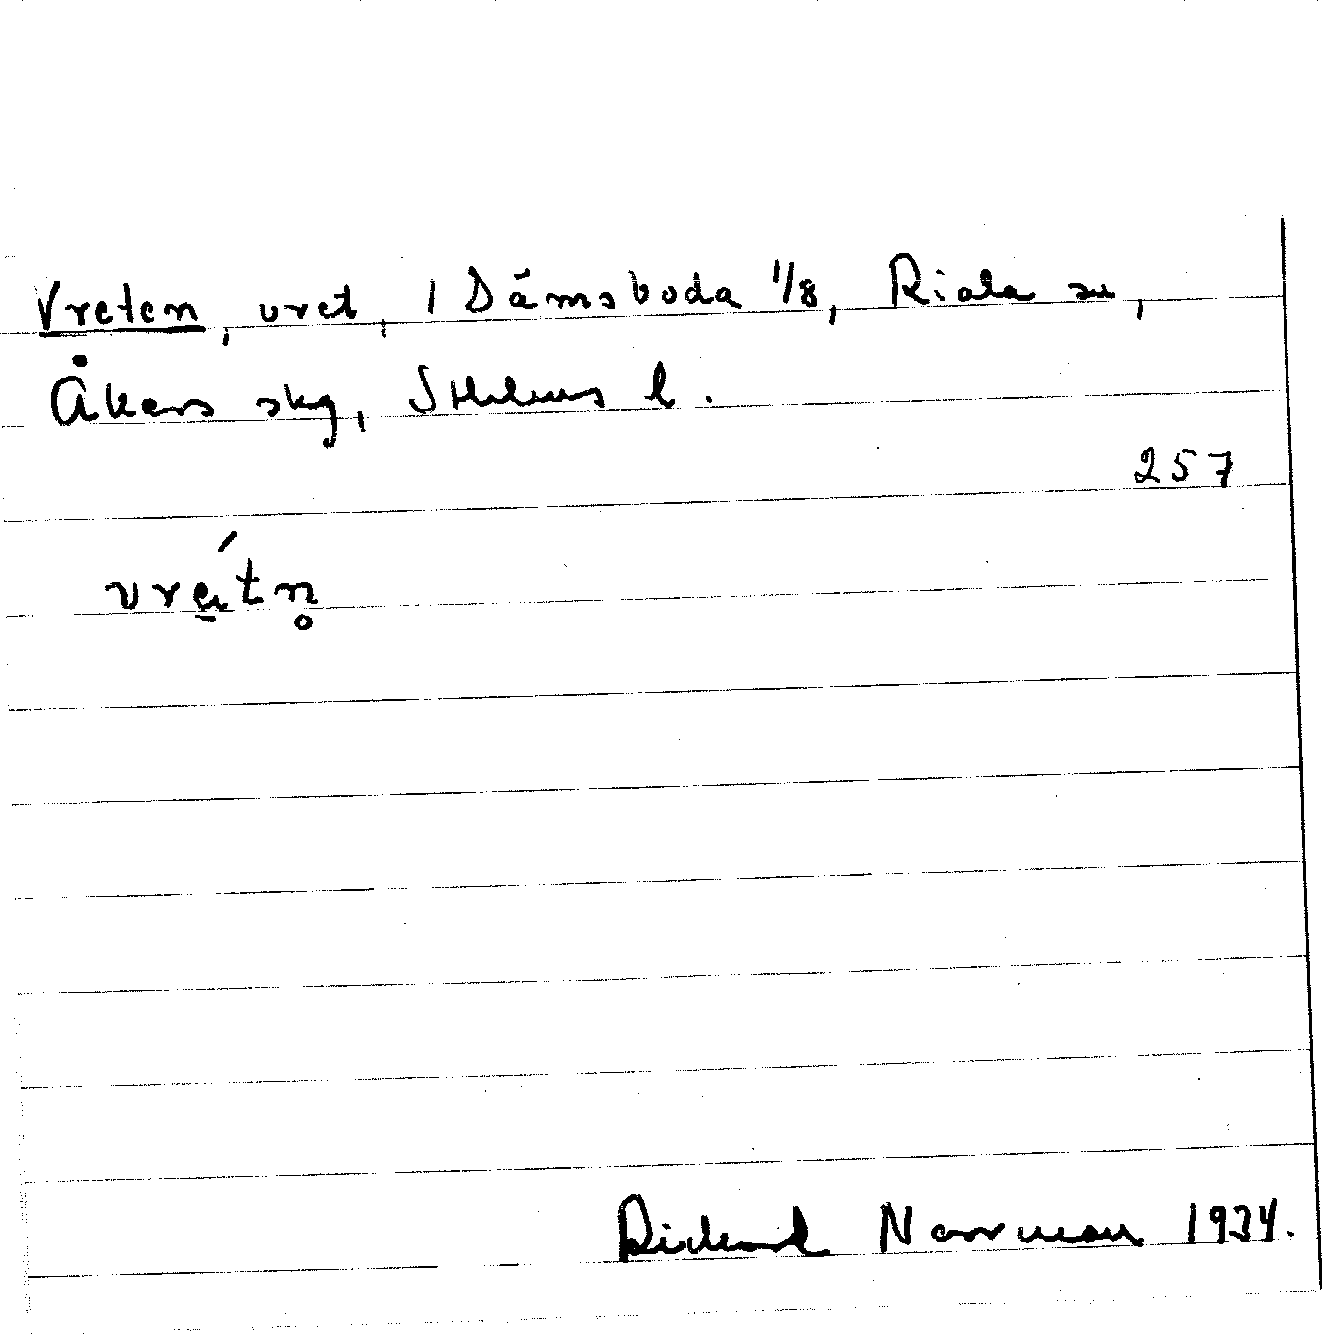 Vreten, vret, 1 Dåmsboda 1/8, Riala sn,
Åkers skg, Sthlms l.
257
vrétn̥
Rickard Norrman 1934.